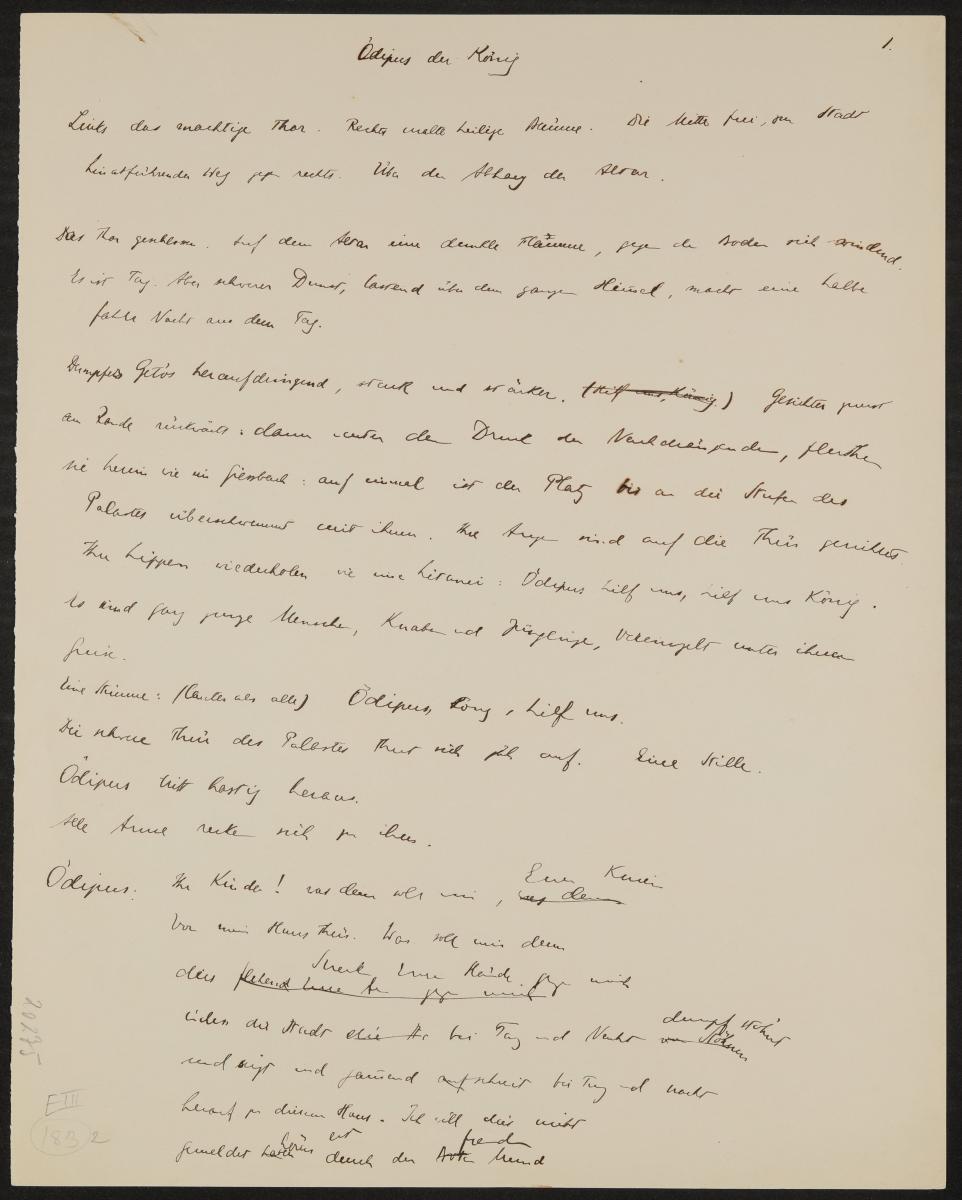 1.
Ödipus der König
Links das mächtige Thor. Rechts uralte heilige Bäume. Die Mitte frei, zur Stadt
hinabführender Weg gegen rechts. Über dem Abhang der Altar.
Das Thor geschlossen. Auf dem Altar eine dunkle Flamme, gegen den Boden sich windend.
Es ist Tag. Aber schwerer Dunst, lastend über dem ganzen Himmel, macht eine halbe
fahle Nacht aus dem Tag.
Dumpfes Getös heraufdringend, stark und stärker. (Hilf uns, König) Gesichter zuerst
am Rande rückwärts: dann unter dem Druck der Nachdrängenden, fluthen
sie herein wie ein Giessbach: auf einmal ist der Platz bis an die Stufen des
Palastes überschwemmt mit ihnen. Ihre Augen sind auf die Thür gerichtet.
Ihre Lippen wiederholen wie eine Litanei: Ödipus hilf uns, hilf uns König.
Es sind ganz junge Menschen, Knaben und Jünglinge, vereinzelt unter ihnen
Greise.
Eine Stimme: (lauter als alle) Ödipus, König, hilf uns.
Die schwere Thür des Palastes thut sich jäh auf. Eine Stille.
Ödipus tritt hastig heraus.
Alle Arme recken sich zu ihm.
Euer Knien
Ödipus: Ihr Kinder! was denn soll mir,
vor meinem Haus Thür. Was soll mir denn
Eurer Hände gegen mich
dies flehend Eure gegen mich
dumpf stöhnt
indess die Stadt bei Tag und Nacht
und ächzt und jammernd aufschreit bei Tag und nacht
herauf zu diesem Haus. Ich will dies nicht
erst fremden
gemeldet durch der Boten Mund
20275
EIII
183 2